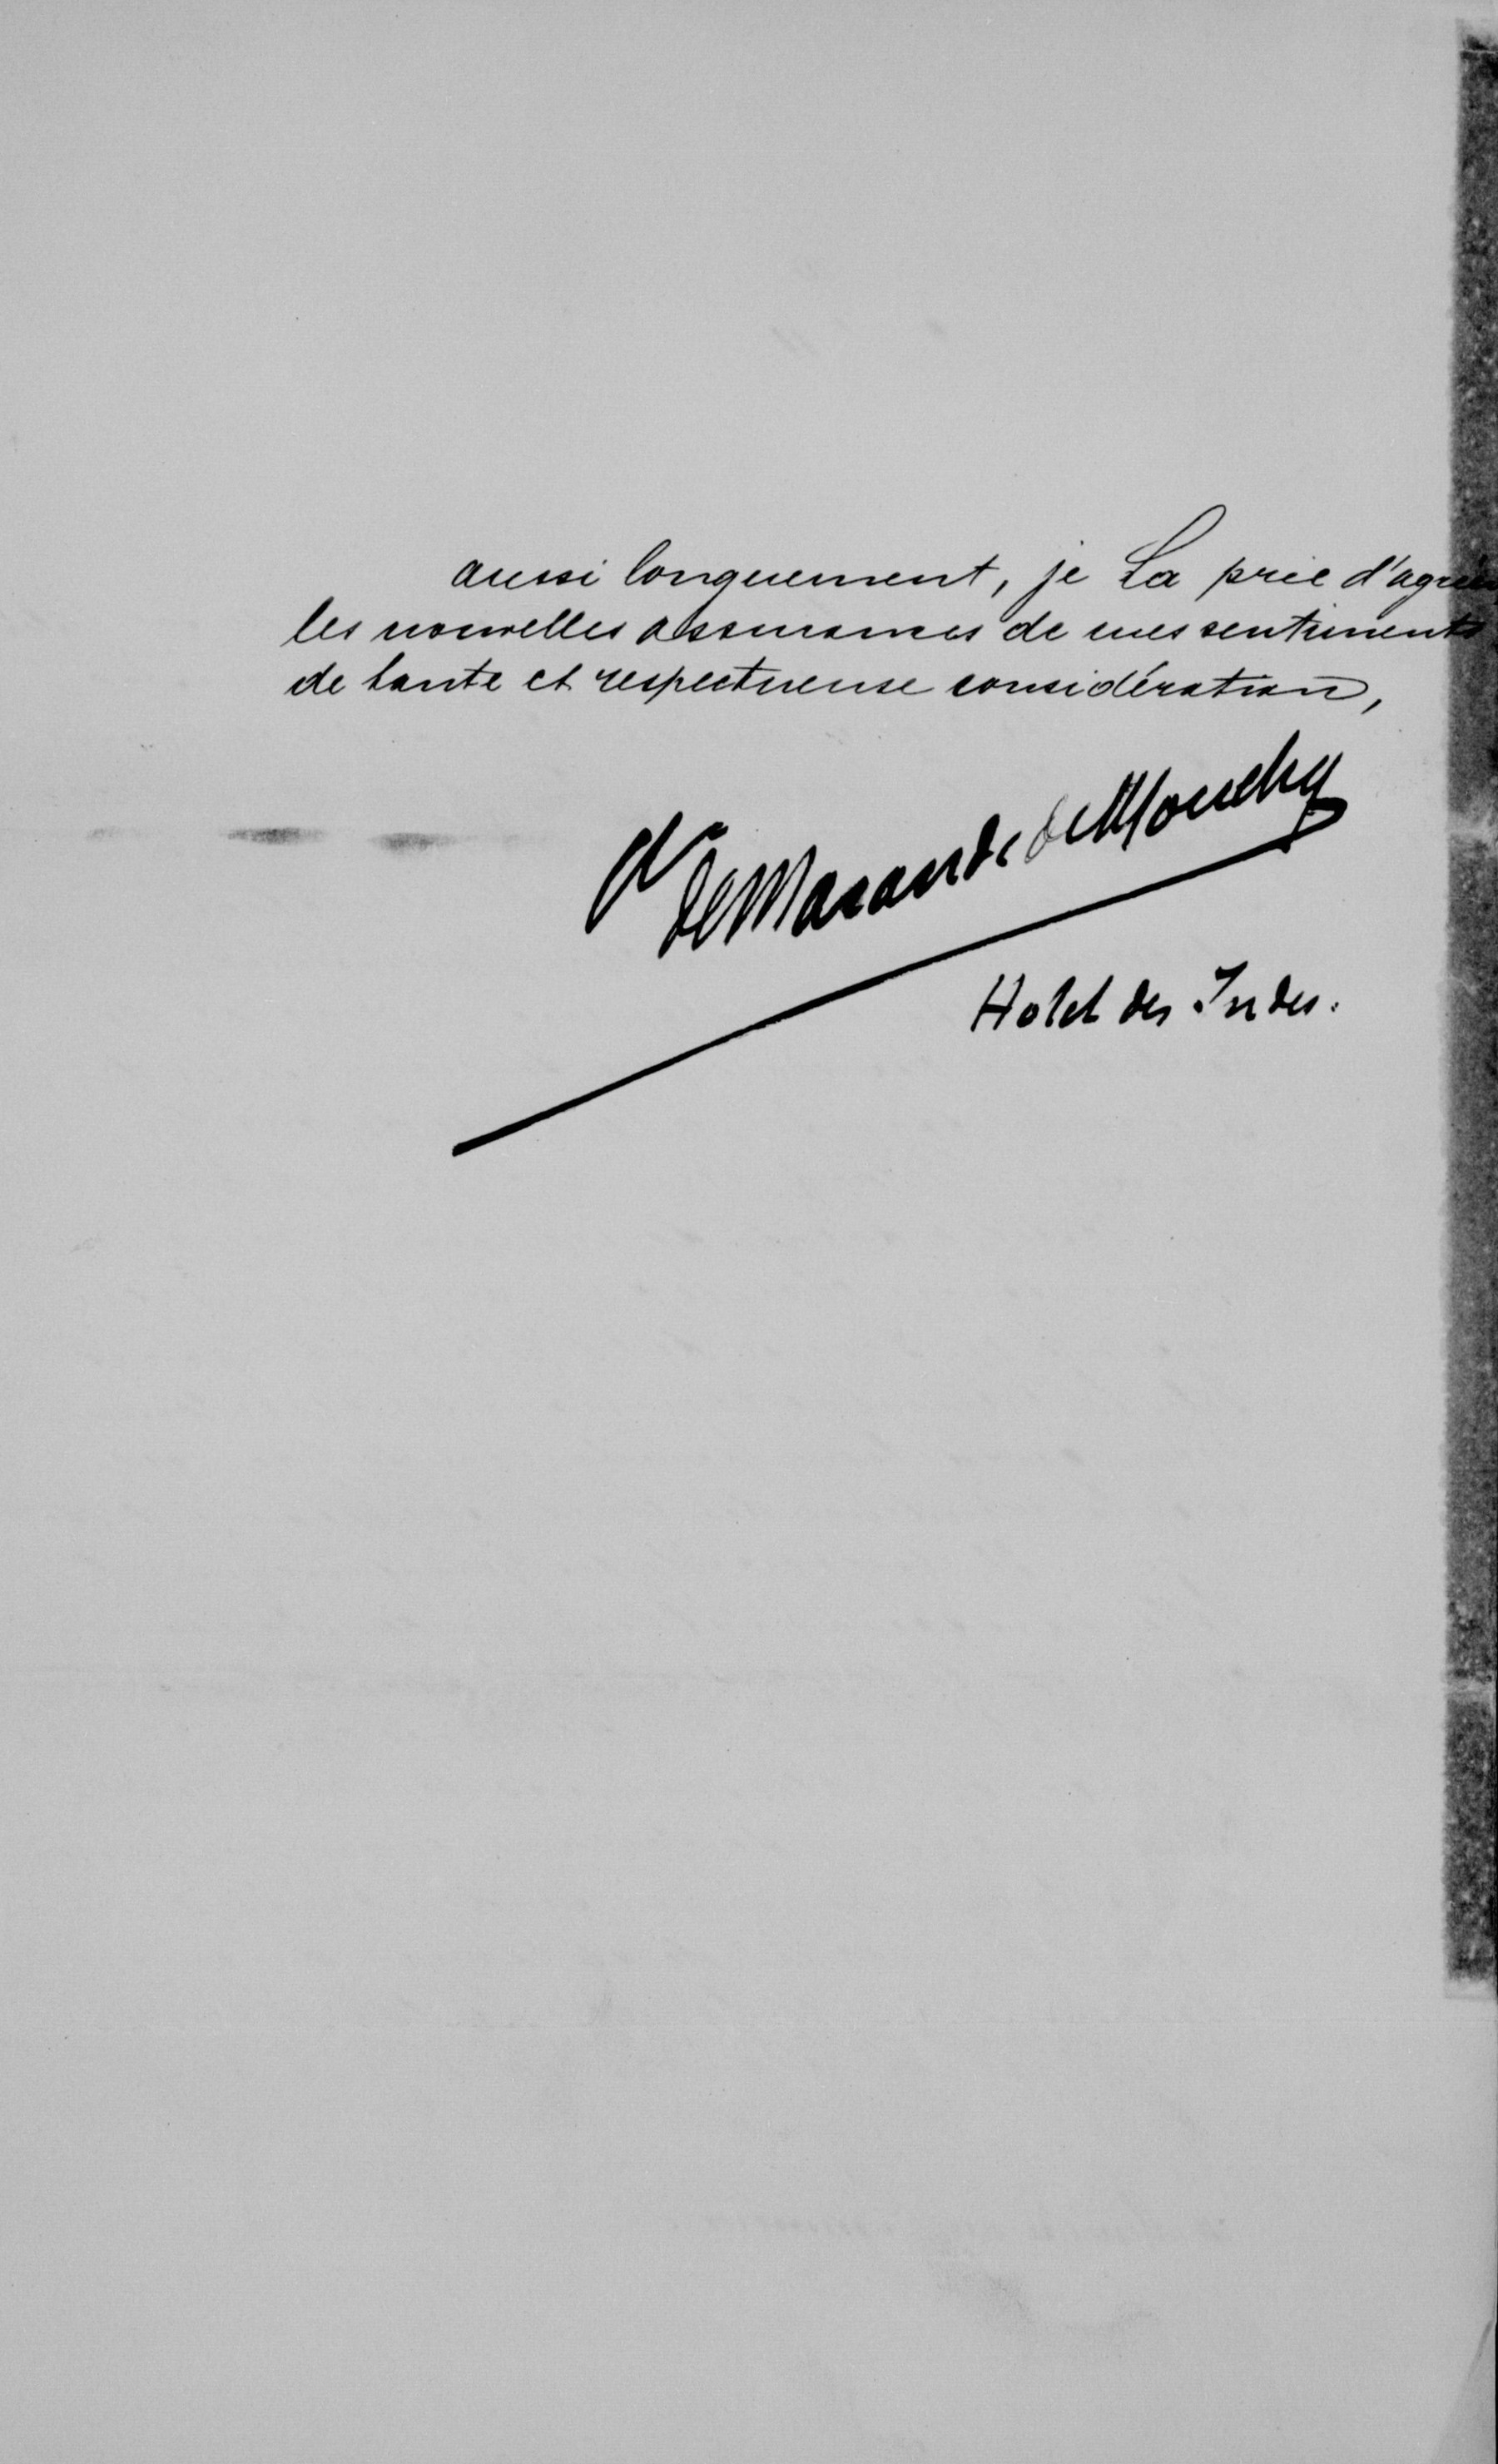 aussi longuement, je La prie d'agréer
les nouvelles assurances de mes sentiments
de haute et respectueuse considération,
de Mouchy
Hotel des Indes.